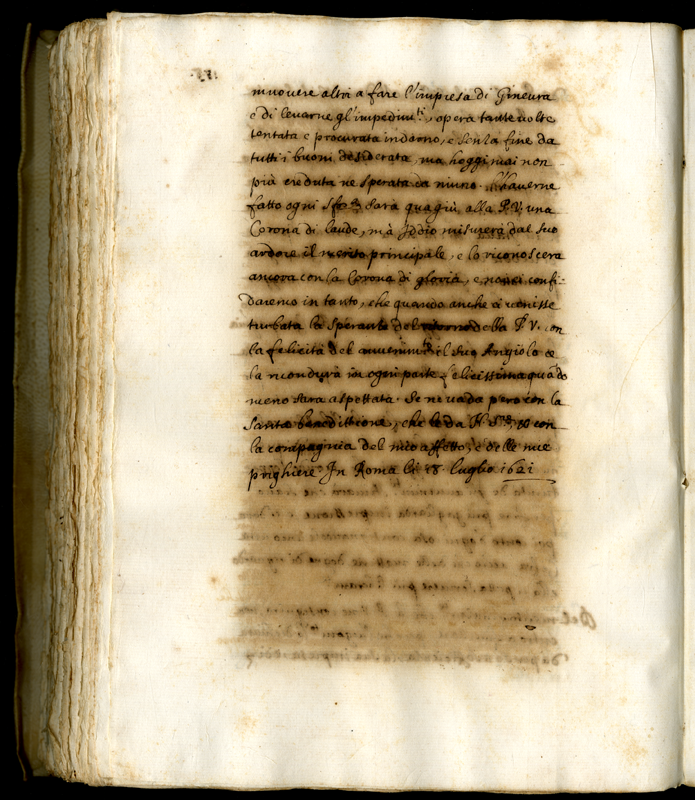 muovere altri a fare l'impresa di Gineura
e di leuarne gl'impedim.ti, opera tante uolte
tentata e procurata indarno, e senza fine da
tutti i buoni desiderata, ma hoggi mai non
più creduta ne sperata da niuno. L'hauerne
fatto ogni sarà quagiù alla P.V. una
Corona di laude, mà Iddio misurerà dal suo
ardore il merito principale, e lo riconoscerà
ancora con la Corona di gloria, e noi ci confi-
daremo in tanto, che quando anche ci uenisse
turbata la speranza del ritorno della P.V. con
la felicità del auuenim.to del suo Angiolo ce
la ricondurà in ogni parte felicissima quãdo
meno sarà aspettata. Se ne uada però con la
santa benedittione, che le da N. S.re, e con
la compagnia del mio affetto, e delle mie
prighiere. In Roma li 28 luglio 1621